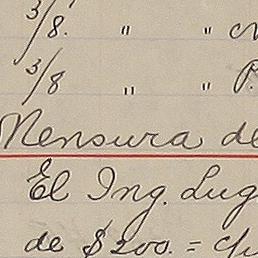 3/8. " "
3/8 " " P.
Mensura de
El Ing. Lug
de $200. = c/u